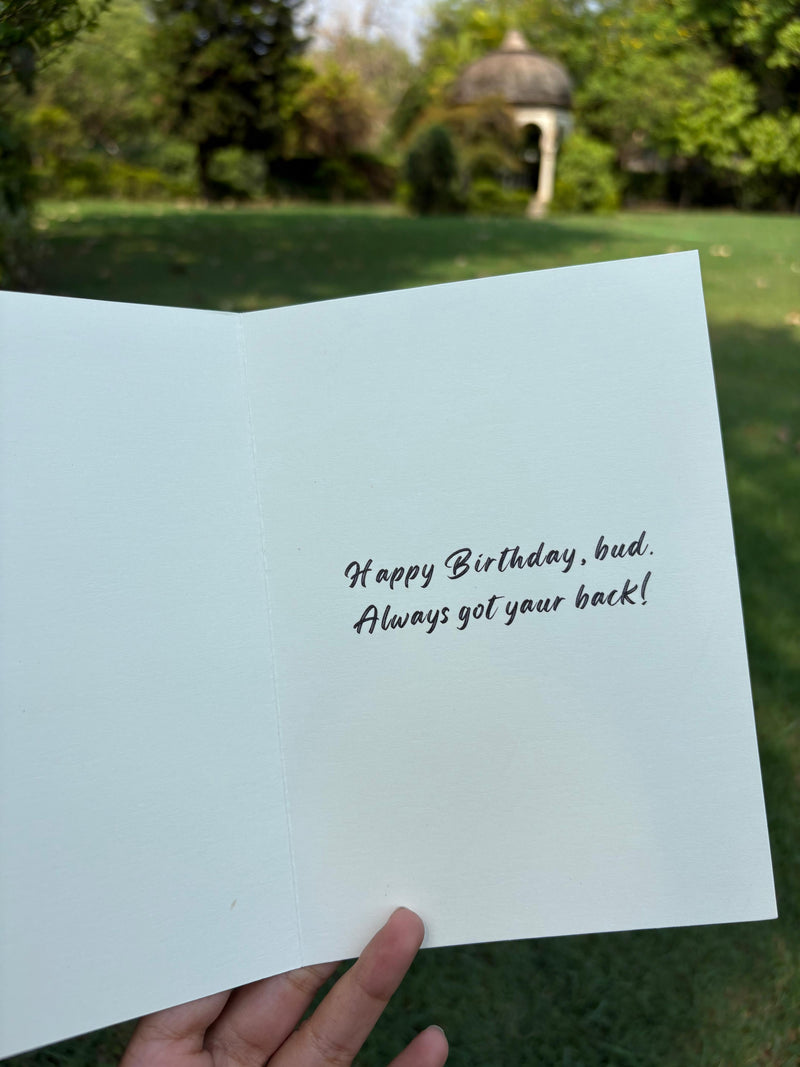 Happy Birthday, bud.
Always got yaur back!